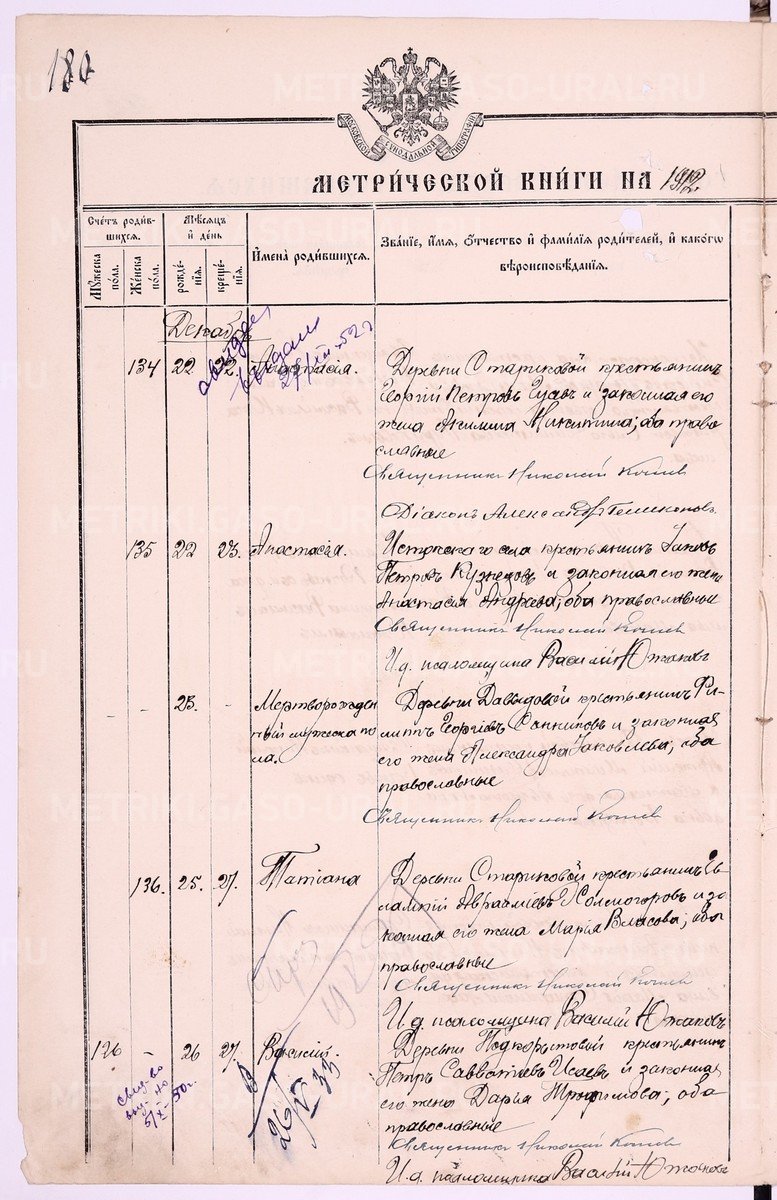 180
МОСКОВСКОЙ СѴНОДАЛЬНОЙ ТИПОГРАФІИ
МЕТРИ́ЧЕСКОЙ КНИ́ГИ НА 1912.
Сче́тъ роди́в-
шихся.
Му́жеска
по́ла.
Же́нска
по́ла.
Мѣ́сяцъ
и де́нь
рожде́-
нїѧ.
креще́-
нїѧ.
Имена̀ роди́вшихся.
Зва́нїе, и́мя, о́тчество и фами́лїя роди́телей, и како́гѡ
вѣроисповѣ́данїя.
Декабрь
выдан
27/XII-52г
134 22 22. Анастасія. Деревни Стариковой крестьянинъ
Георгій Петровъ и законная его
жена Акилина Никитина; оба право
славные
Священникъ Николай
Діаконъ Александръ
135 22 23. Анастасія. Истокскаго села крестьянинъ Іаковъ
Петровъ Кузнецовъ и законная его жена
Анастасія Андреева; оба православные
Священникъ Николай
И. д. псаломщика Василій Южаковъ
- - 23. - Мертворожден
ный мужеска по
ла.
Деревни Давыдовой крестьянинъ Фи-
липпъ Георгіевъ и законная
его жена Александра Іаковлева; оба
православные
Священникъ Николай
136. 25. 27. Татіана Деревни Стариковой крестьянинъ Ев
лампій Авраміевъ Холмогоровъ и за
конная его жена Марія Власова; оба
православные
Священникъ Николай
И. д. псаломщика Василій Южаковъ
126 - 26 27. Василій. Деревни Подкорытовой крестьянинъ
Петръ Савватіевъ Исаевъ и законная
его жена Дарья Трифимова; оба
православные
Священникъ Николай
И. д. псаломщика Василій Южаковъ
свид-во
5/X-50г.
26/V 33
METRIKI.GASO-URAL.RU